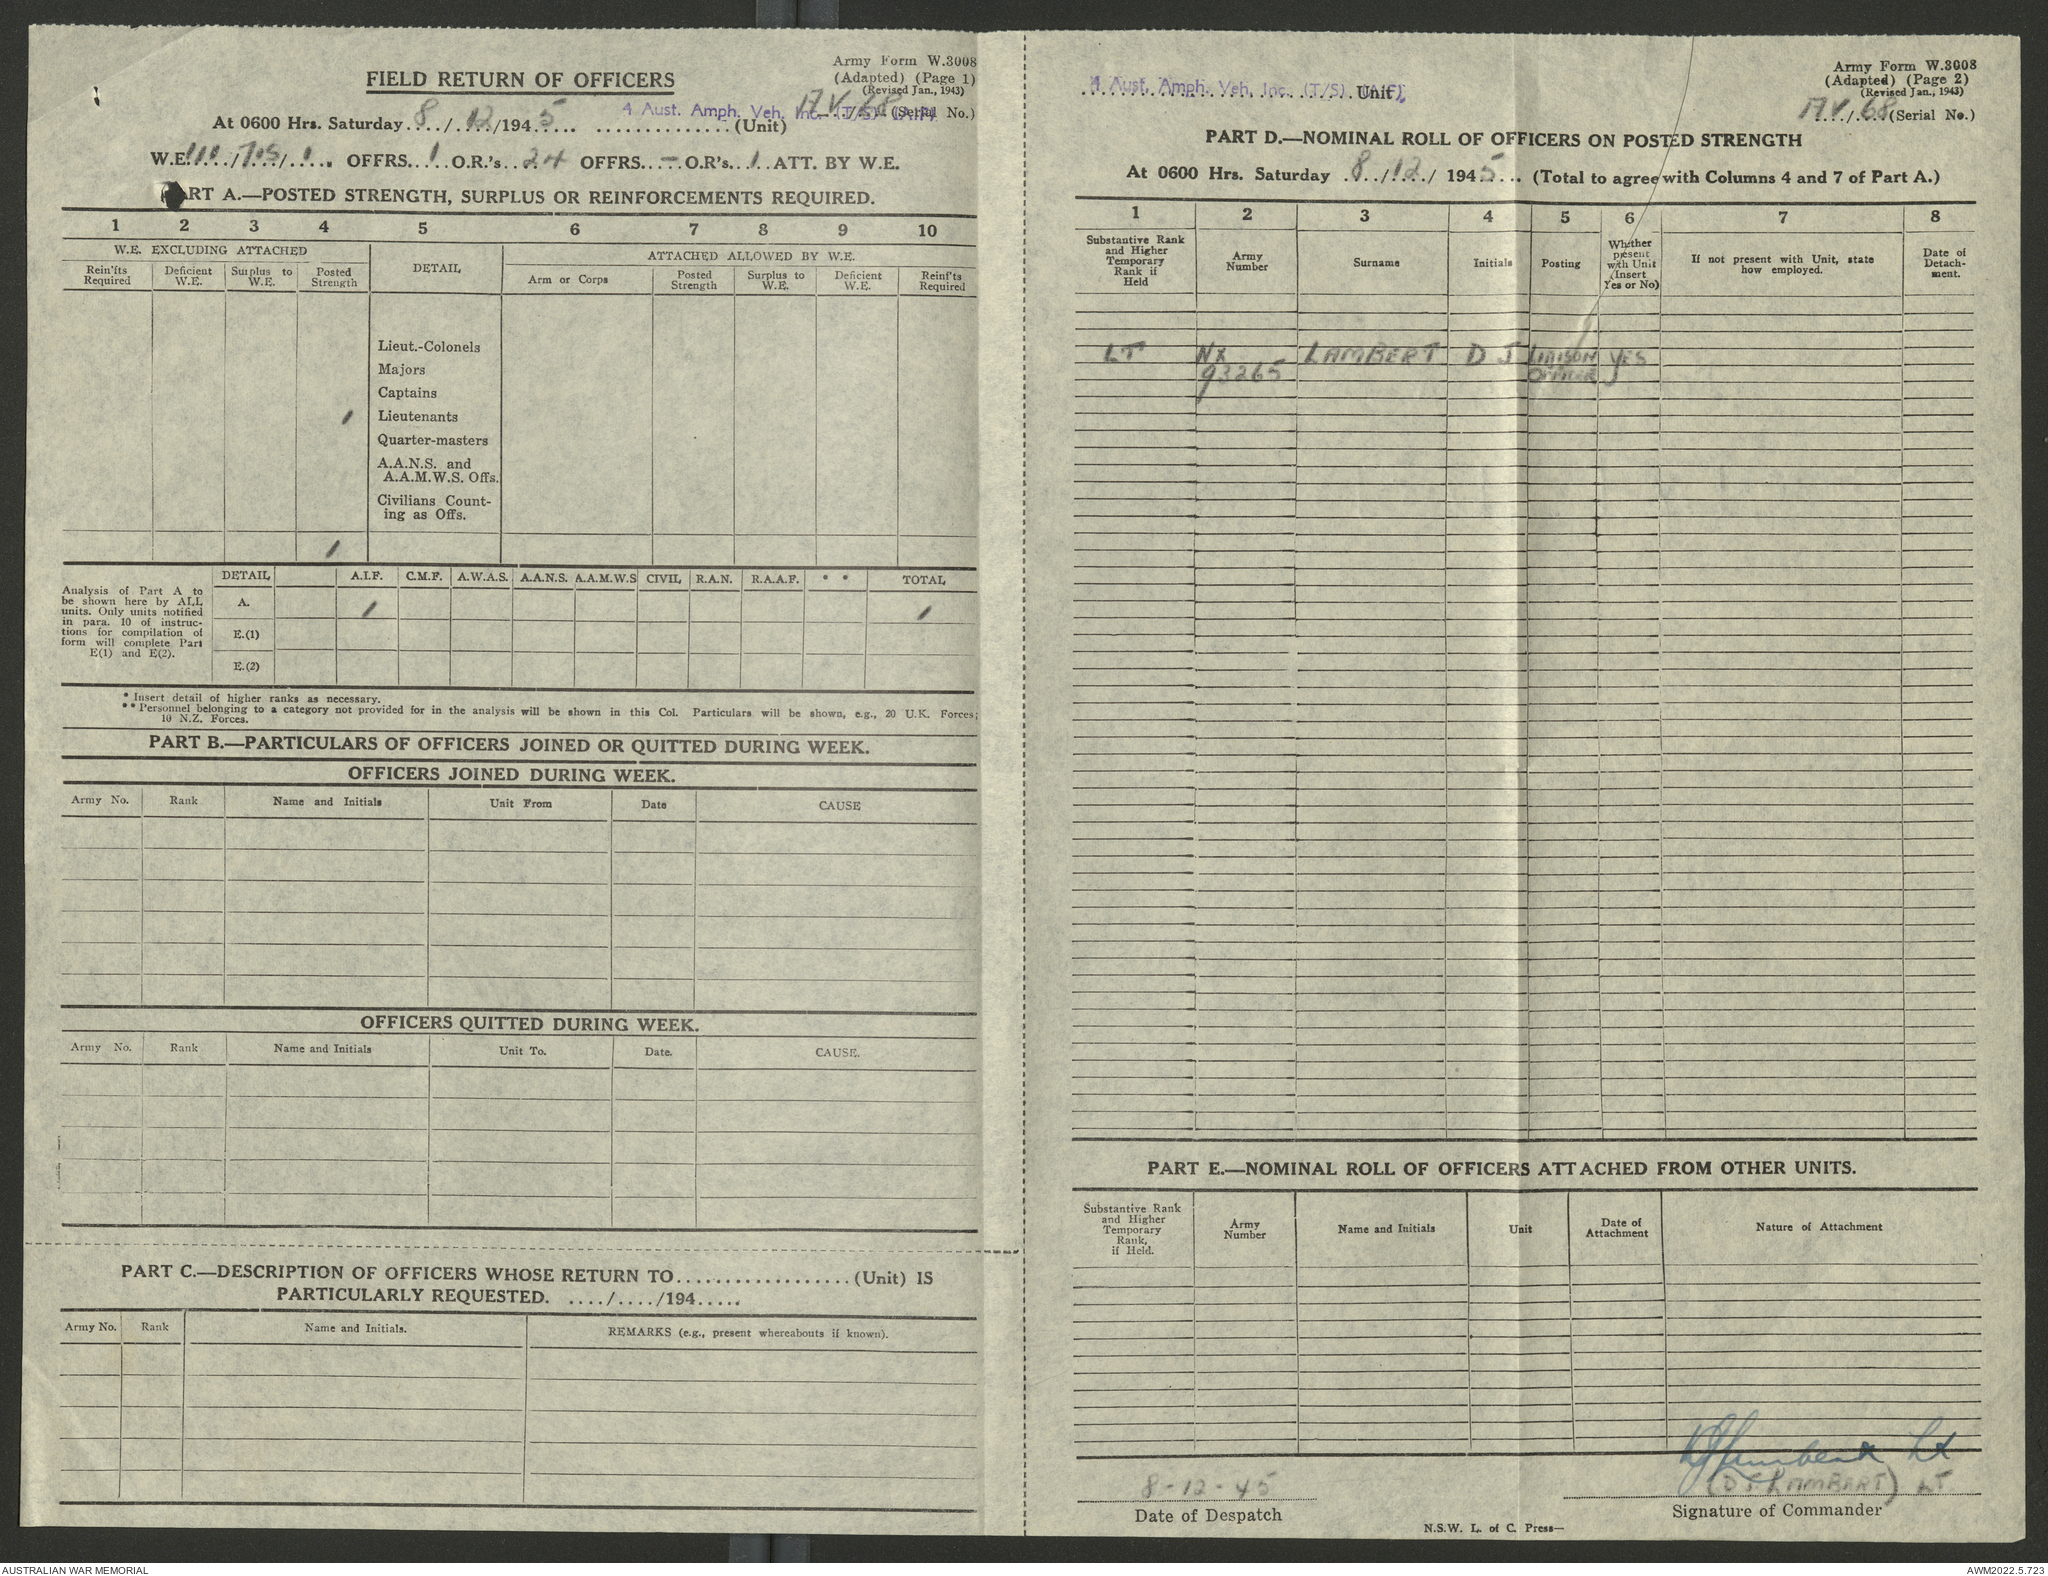 Army Form W.3008
(Adapted) (Page 1)
(Revised Jan., 1943)
FIELD RETURN OF OFFICERS
4 Aust. Amph. Veh. Inc. (T/S) (AIF)
17 V./68 (Serial No.)
At 0600 Hrs. Saturday 8/12/1945 .............. (Unit)
W.E. 111/705/1 OFFRS. 1 O.R.'s 24 OFFRS. – O.R's. 1 ATT. BY W.E.
PART A.—POSTED STRENGTH, SURPLUS OR REINFORCEMENTS REQUIRED.
1 2 3 4 5 6 7 8 9 10
W.E. EXCLUDING ATTACHED
DETAIL
ATTACHED ALLOWED BY W.E.
Rein'fts Required
Deficient W.E.
Surplus to W.E.
Posted Strength
Arm or Corps
Posted Strength
Surplus to W.E.
Deficient W.E.
Reinf'ts Required
Lieut.-Colonels
Majors
Captains
1 Lieutenants
Quarter-masters
A.A.N.S. and
A.A.M.W.S. Offs.
Civilians Count-
ing as Offs.
1
Analysis of Part A to
be shown here by ALL
units. Only units notified
in para. 10 of instruc-
tions for compilation of
form will complete Part
E(1) and E(2).
DETAIL A.I.F. C.M.F. A.W.A.S. A.A.N.S. A.A.M.W.S CIVIL R.A.N. R.A.A.F. * * TOTAL
A. 1 1
E.(1)
E.(2)
* Insert detail of higher ranks as necessary.
** Personnel belonging to a category not provided for in the analysis will be shown in this Col. Particulars will be shown, e.g., 20 U.K. Forces;
10 N.Z. Forces.
PART B.—PARTICULARS OF OFFICERS JOINED OR QUITTED DURING WEEK.
OFFICERS JOINED DURING WEEK.
Army No. Rank Name and Initials Unit From Date CAUSE
OFFICERS QUITTED DURING WEEK.
Army No. Rank Name and Initials Unit To. Date. CAUSE.
PART C.—DESCRIPTION OF OFFICERS WHOSE RETURN TO.................. (Unit) IS
PARTICULARLY REQUESTED. ..../..../194.....
Army No. Rank Name and Initials. REMARKS (e.g., present whereabouts if known).
Army Form W.3008
(Adapted) (Page 2)
(Revised Jan., 1943)
4 Aust. Amph. Veh. Inc. (T/S) (AIF) Unit
17 V./68 (Serial No.)
PART D.—NOMINAL ROLL OF OFFICERS ON POSTED STRENGTH
At 0600 Hrs. Saturday 8/12/1945 (Total to agree with Columns 4 and 7 of Part A.)
1 2 3 4 5 6 7 8
Substantive Rank
and Higher
Temporary
Rank if
Held
Army
Number
Surname
Initials
Posting
Whether
present
with Unit
(Insert
Yes or No)
If not present with Unit, state
how employed.
Date of
Detach-
ment.
LT NX LAMBERT D J LIAISON YES
93265 OFFICER
PART E.—NOMINAL ROLL OF OFFICERS ATTACHED FROM OTHER UNITS.
Substantive Rank
and Higher
Temporary
Rank,
if Held.
Army
Number
Name and Initials
Unit
Date of
Attachment
Nature of Attachment
DJ Lambert Lt
8-12-45 (D J LAMBERT) LT
Date of Despatch
Signature of Commander
N.S.W. L. of C. Press—
AUSTRALIAN WAR MEMORIAL
AWM2022.5.723